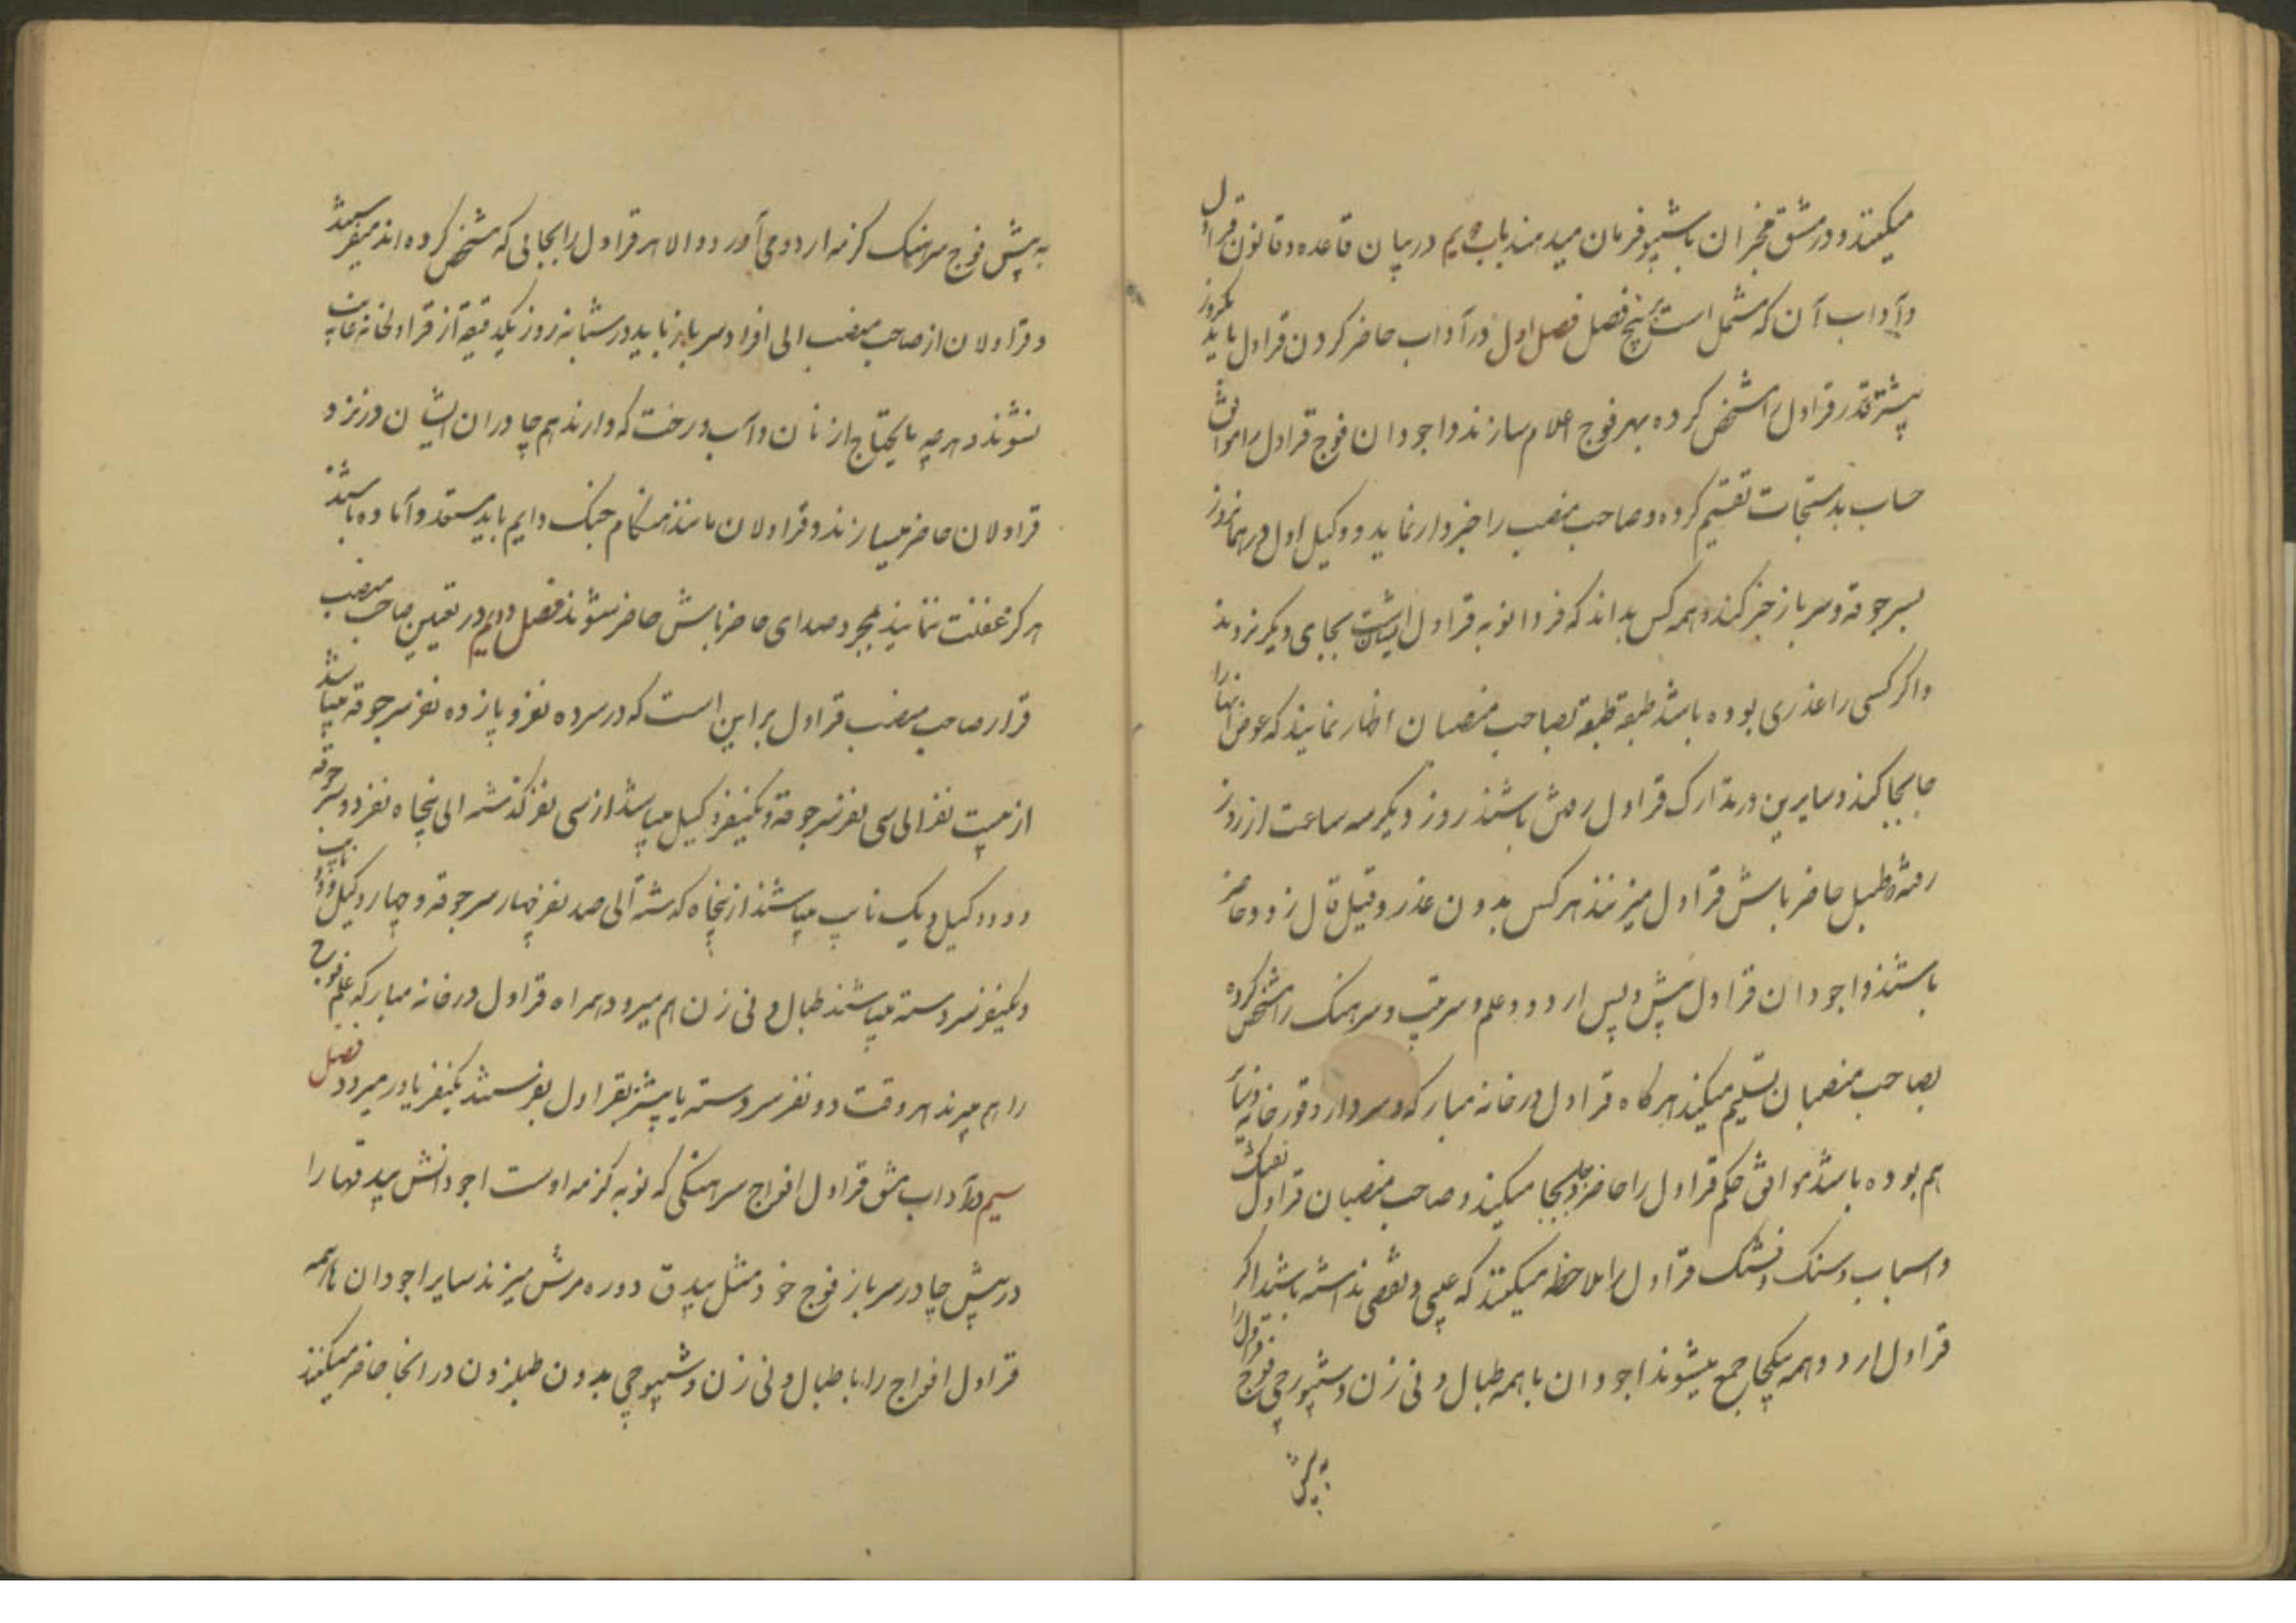 میکنند و در مشق مخبران با شیپو فرمان میدهند باب دهیم در بیان قاعده و قانون قراول
و آداب آن که مشتمل است بر پنج فصل فصل اول در آداب حاضر کردن قراول باید یکروز
پیشتر قدر قراول را مشخص کرده بهر فوج اعلام سازند و اجودان فوج قراول را موافق
حساب بدستجات تقسیم کرده و صاحب منصب را خبردار نماید و وکیل اول در همانروز
بسرجوقه و سرباز خبر کند و همه کس بداند که فردا نوبه قراول ایشان است بجای دیگر نروند
و اگر کسی را عذری بوده باشد طبقه طبقه بصاحب منصبان اظهار نمایند که عوض آنها را
جابجا کنند و سایرین در تدارک قراول رفتن باشند روز دیگر سه ساعت از روز
رفته طبل حاضر باش قراول میزنند هر کس بدون عذر و قیل قال زود حاضر
باشند و اجودان قراول پیش و پس اردو و علم و سرتیپ و سرهنک را مشخص کرده
بصاحب منصبان تسلیم میکنند هرکاه قراول درخانه مبارکه و سردار و قورخانه و غیره
هم بوده باشد موافق حکم قراول را حاضر و جابجا میکنند و صاحب منصبان قراول تفنک
و اسباب و سنک و فشنک قراول را ملاحظه میکنند که عیبی و نقصی نداشته باشد اگر
قراول اردو همه یکجا جمع میشوند اجودان با همه طبال و نی زن و شیپورچی فوج قراول را
به پیش
به پیش فوج سرهنک کزمه اردو می آورد و الا هر قراول را بجائی که مشخص کرده اند میفرستد
و قراولان از صاحب منصب الی افراد سرباز نباید در شبانه روز یکدقیقه از قراولخانه غایب
نشوند و هر چه مایحتاج از نان و آب و رخت که دارند هم چادران ایشان در نزد
قراولان حاضر میسازند و قراولان مانند هنکام جنک دایم باید مستعد و آماده باشند
هرکز غفلت ننمایند بمجرد صدای حاضر باش حاضر شوند فصل دویم در تعیین صاحب منصب
قرار صاحب منصب قراول بر این است که در سر ده نفر و پانزده نفر سرجوقه میباشد
از بیست نفر الی سی نفر سرجوقه و یکنفر وکیل میباشد از سی نفر گذشته الی پنجاه نفر دو سرجوقه
و دو وکیل و یک نایب میباشند از پنجاه گذشته الی صد نفر چهار سرجوقه و چهار وکیل و دو نایب
و یکنفر سردسته میباشند طبال و نی زن هم میرود همراه قراول درخانه مبارکه علم فوج
را هم میبرند هر وقت دو نفر سردسته یا پیشتر بقراول بفرستند یکنفر یاور میرود فصل
سیم در آداب مشق قراول افواج سرهنکی که نوبه کزمه اوست اجودانش بیدقها را
در پیش چادر سرباز فوج خود مثل بیدق دوره مرش میزند سایر اجودان با همه
قراول افواج را با طبال و نی زن و شیپوچی بدون طبل زدن در انجا حاضر میکنند